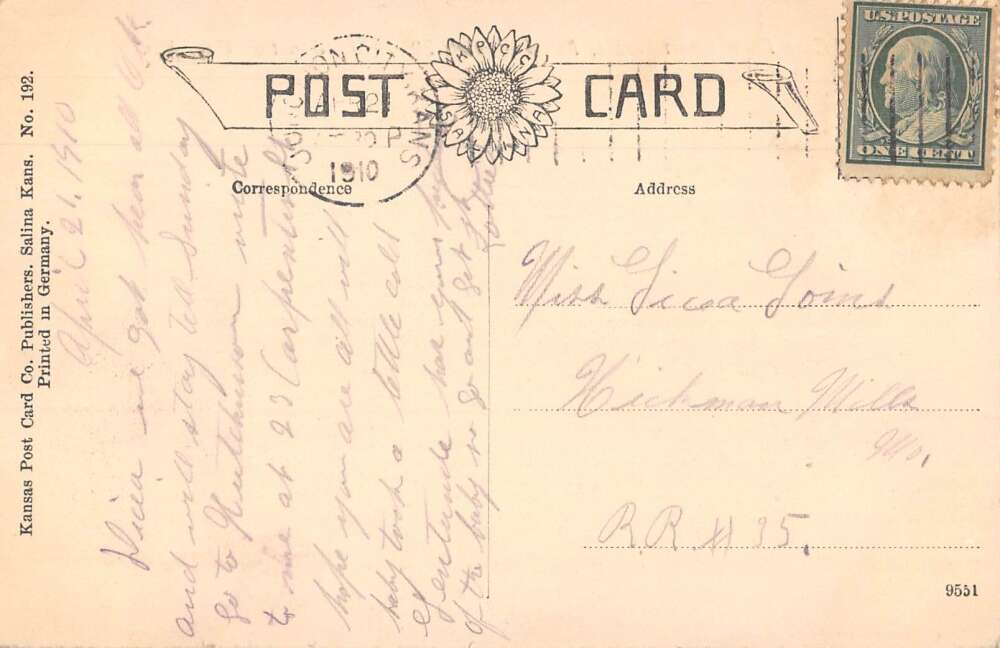 Kansas Post Card Co. Publishers. Salina Kans. No. 192.
Printed in Germany.
POST CARD
K.P.C.CO.
SALINA KANS
U.S. POSTAGE
ONE CENT
KANS
1910
Correspondence
Address
April 21. 1910
we got here all OK
and will stay till Sunday
go to Hutchinson write
to me at 23 Carpenter St
hope you are all well
baby took a little cold
have you
of the baby so
Miss Licca Goins
Hickman Mills
Mo.
R.R. # 35.
9551